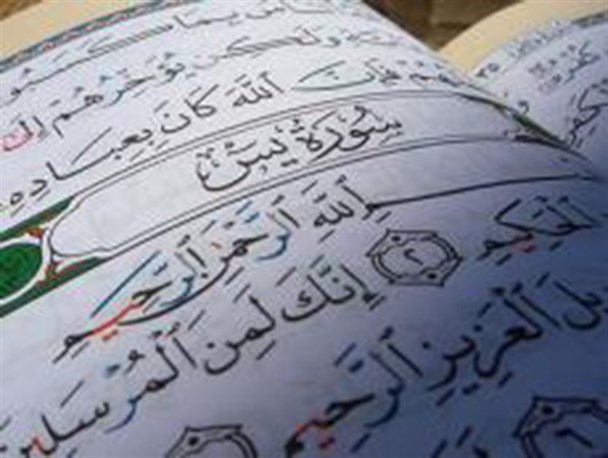 الناس بما كسبوا
ولكن يؤخرهم إلى
فإن الله كان بعباده
سورة يس
الله الرحمن الرحيم
الحكيم ٢ إنك لمن المرسلين
العزيز الرحيم